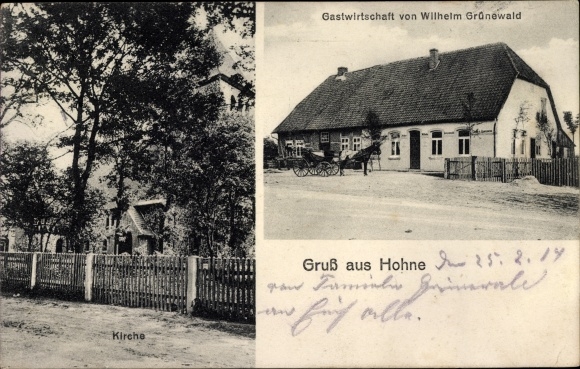 Gastwirtschaft von Wilhelm Grünewald
Kirche
Gruß aus Hohne
Den 25. 2. 14
von Familie Grünewald
an Euch alle.